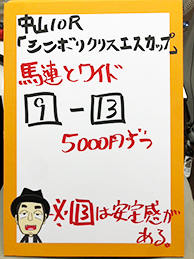 中山10R
「シンボリクリスエスカップ」
馬連とワイド
9-13
5000円ずつ
※13は安定感が
ある。